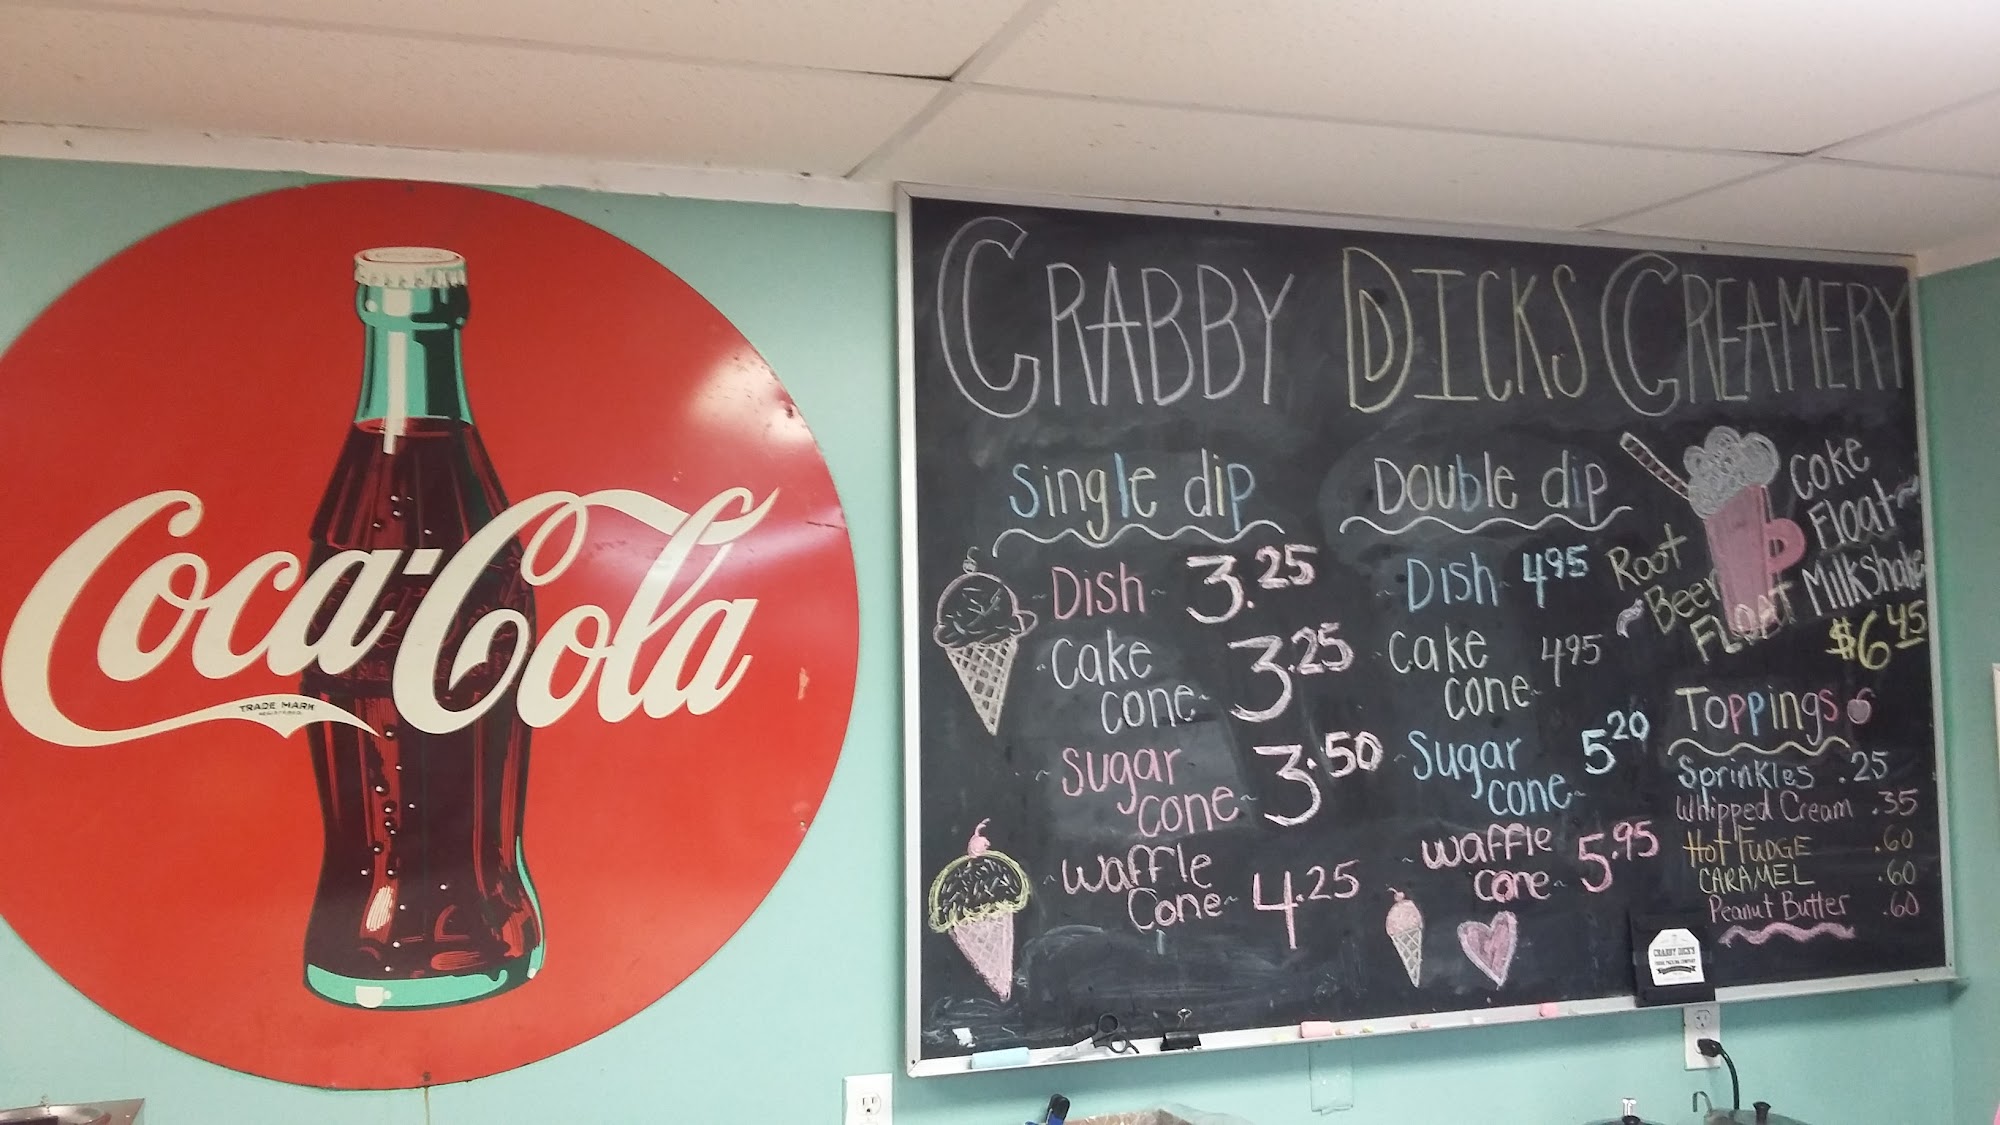 Coca-Cola
TRADE MARK
CRABBY DICKS CREAMERY
Single dip
~ Dish ~ 3.25
~ Cake
cone ~ 3.25
~ Sugar
cone ~ 3.50
~ Waffle
Cone ~ 4.25
Double dip
~ Dish ~ 4.95
~ Cake
cone ~ 4.95
~ Sugar
cone ~ 5.20
~ Waffle
cone ~ 5.95
Coke
Float ~
Root
Beer
Float
Milkshake
$6.45
Toppings
Sprinkles .25
Whipped Cream .35
Hot FUDGE .60
CARAMEL .60
Peanut Butter .60
CRABBY DICK'S